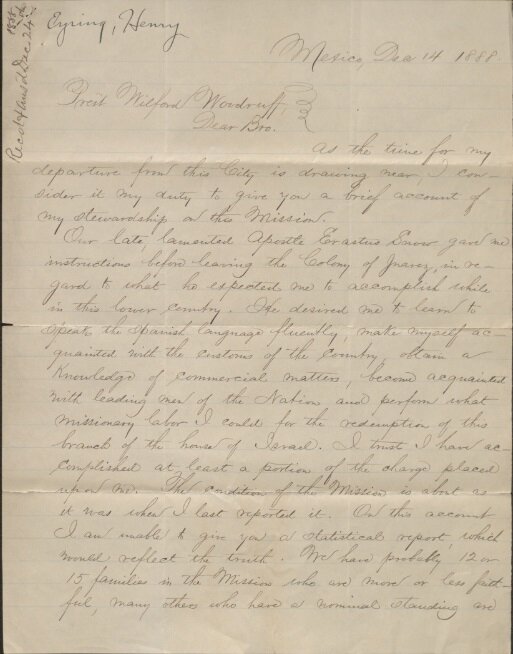 Eyring, Henry
Recd & ansd Dec 24th 1888
Mexico, Dec 14 1888
Prest Wilford Woodruff,
Dear Bro.
As the time for my
departure from this City is drawing near, I con-
sider it my duty to give you a brief account of
my stewardship on this Mission.
Our late, lamented Apostle Erastus Snow gave me
instructions before leaving the Colony of Juarez, in re-
gard to what he expected me to accomplish while
in this lower country. He desired me to learn to
speak the Spanish language fluently, make myself ac
quainted with the customs of the country, obtain a
Knowledge of commercial matters, become acquainted
with leading men of the Nation and perform what
missionary labor I could for the redemption of this
branch of the house of Israel. I trust I have ac-
complished at least a portion of the charge placed
upon me. The condition of the Mission is about as
it was when I last reported it. On this account
I am unable to give you a statistical report, which
would reflect the truth. We have probably 12 or
15 families in the Mission who are more or less faith-
ful, many others who have a nominal standing are